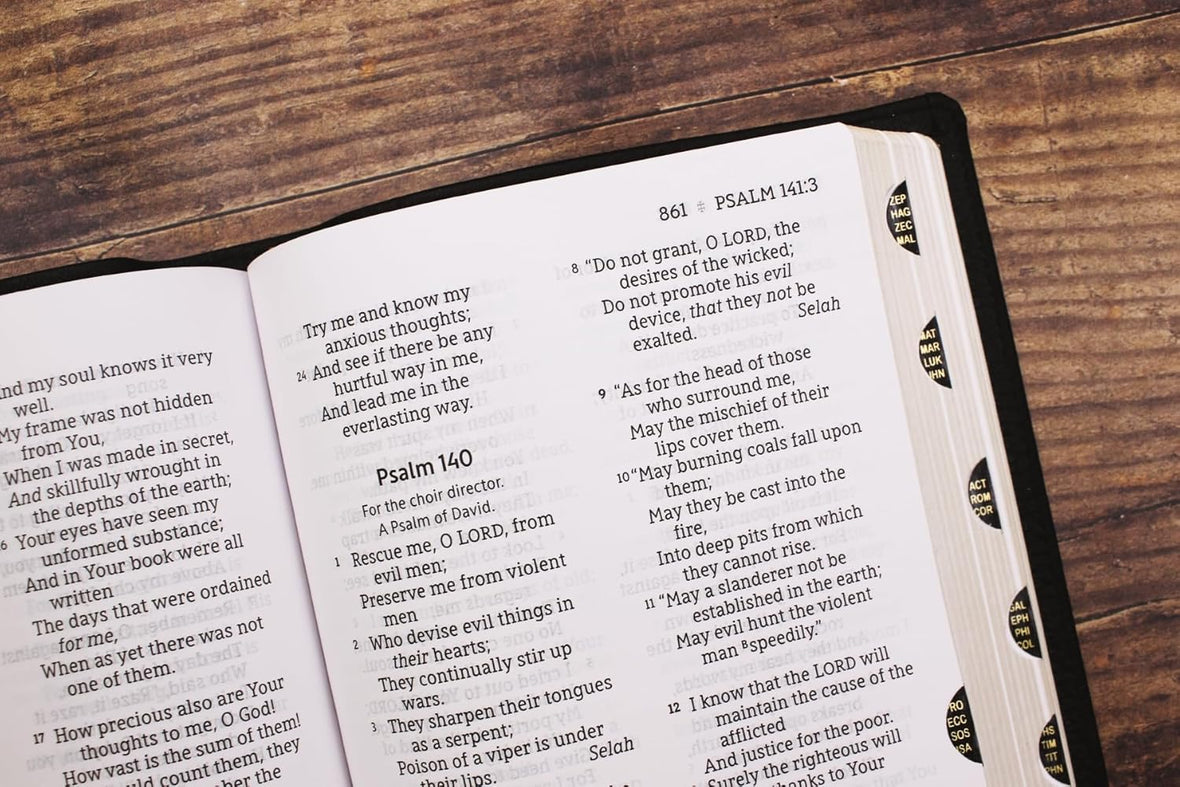 nd my soul knows it very
well.
My frame was not hidden
from You,
When I was made in secret,
And skillfully wrought in
the depths of the earth;
6 Your eyes have seen my
unformed substance;
And in Your book were all
written
The days that were ordained
for me,
When as yet there was not
one of them.
17 How precious also are Your
thoughts to me, O God!
How vast is the sum of them!
uld count them, they
ber the
861 PSALM 141:3
Try me and know my
anxious thoughts;
24 And see if there be any
hurtful way in me,
And lead me in the
everlasting way.
Psalm 140
For the choir director.
A Psalm of David.
1 Rescue me, O LORD, from
evil men;
Preserve me from violent
men
2 Who devise evil things in
their hearts;
They continually stir up
wars.
3 They sharpen their tongues
as a serpent;
Poison of a viper is under
their lips. Selah
8 “Do not grant, O LORD, the
desires of the wicked;
Do not promote his evil
device, that they not be
exalted. Selah
9 “As for the head of those
who surround me,
May the mischief of their
lips cover them.
10 “May burning coals fall upon
them;
May they be cast into the
fire,
Into deep pits from which
they cannot rise.
11 “May a slanderer not be
established in the earth;
May evil hunt the violent
man speedily.”
12 I know that the LORD will
maintain the cause of the
afflicted
And justice for the poor.
Surely the righteous will
thanks to Your
ZEP
HAG
ZEC
MAL
MAT
MAR
LUK
JHN
ACT
ROM
COR
GAL
EPH
PHI
COL
RO
ECC
SOS
ISA
HS
TIM
TIT
PHN